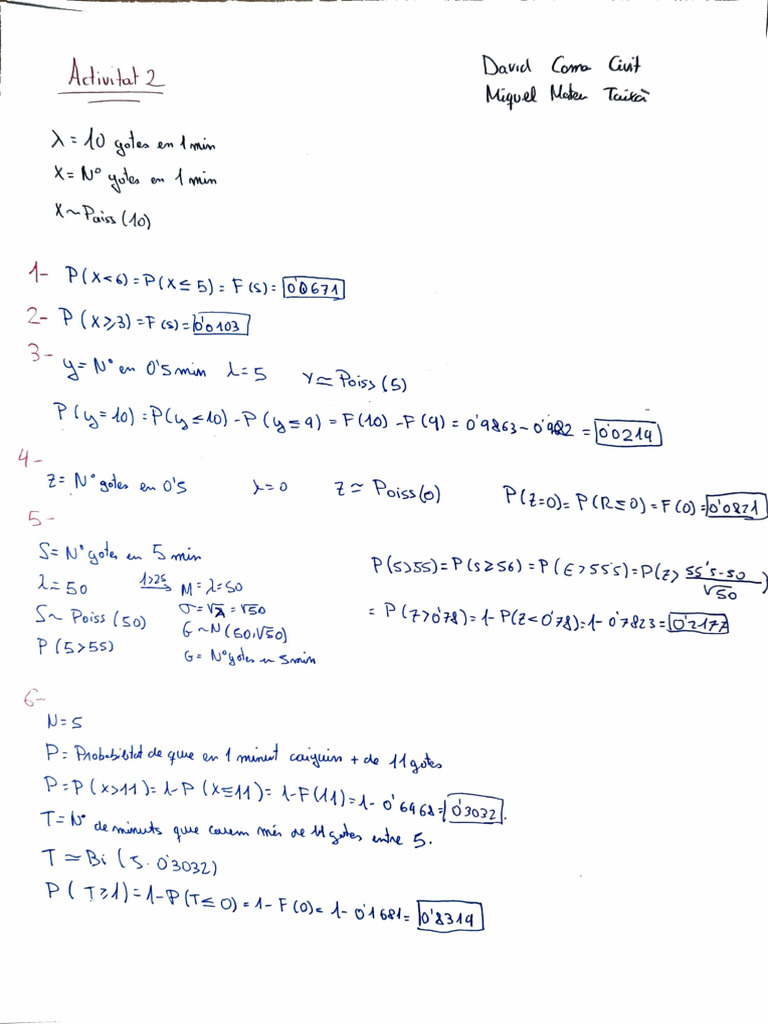 Activitat 2
David Coma Civit
Miquel Mateu Taixà
λ = 10 gotes en 1 min
X = Nº gotes en 1 min
X ~ Poiss (10)
1- P(X<6) = P(X ≤ 5) = F(5) = 0'0671
2- P(X ≥ 3) = F(s) = 0'0103
3-
y = Nº en 0'5 min λ = 5 Y ≃ Poiss (5)
P(y = 10) = P(y ≤ 10) - P(y ≤ 9) = F(10) - F(9) = 0'9863 - 0'982 = 0'0219
4-
Z = Nº gotes en 0'5 λ = 0 Z ≃ Poiss(0) P(Z=0) = P(R ≤ 0) = F(0) = 0'0821
5-
S = Nº gotes en 5 min
λ = 50 λ>25 → M = λ = 50
σ = √λ = √50
S ~ Poiss (50) G ~ N (50, √50)
P (5 > 55) G = Nº gotes en 5 min
P(5>55) = P(S ≥ 56) = P(E > 55'5) = P(Z > 55'5-50 / √50)
= P(Z > 0'78) = 1 - P(Z < 0'78) = 1 - 0'7823 = 0'2177
6-
N = 5
P = Probabilitat de que en 1 minut caiguin + de 11 gotes
P = P(X>11) = 1 - P(X ≤ 11) = 1 - F(11) = 1 - 0'6968 = 0'3032.
T = Nº de minuts que cauem més de 11 gotes entre 5.
T ≃ Bi (5. 0'3032)
P( T ≥ 1) = 1 - P(T ≤ 0) = 1 - F(0) = 1 - 0'1681 = 0'8319